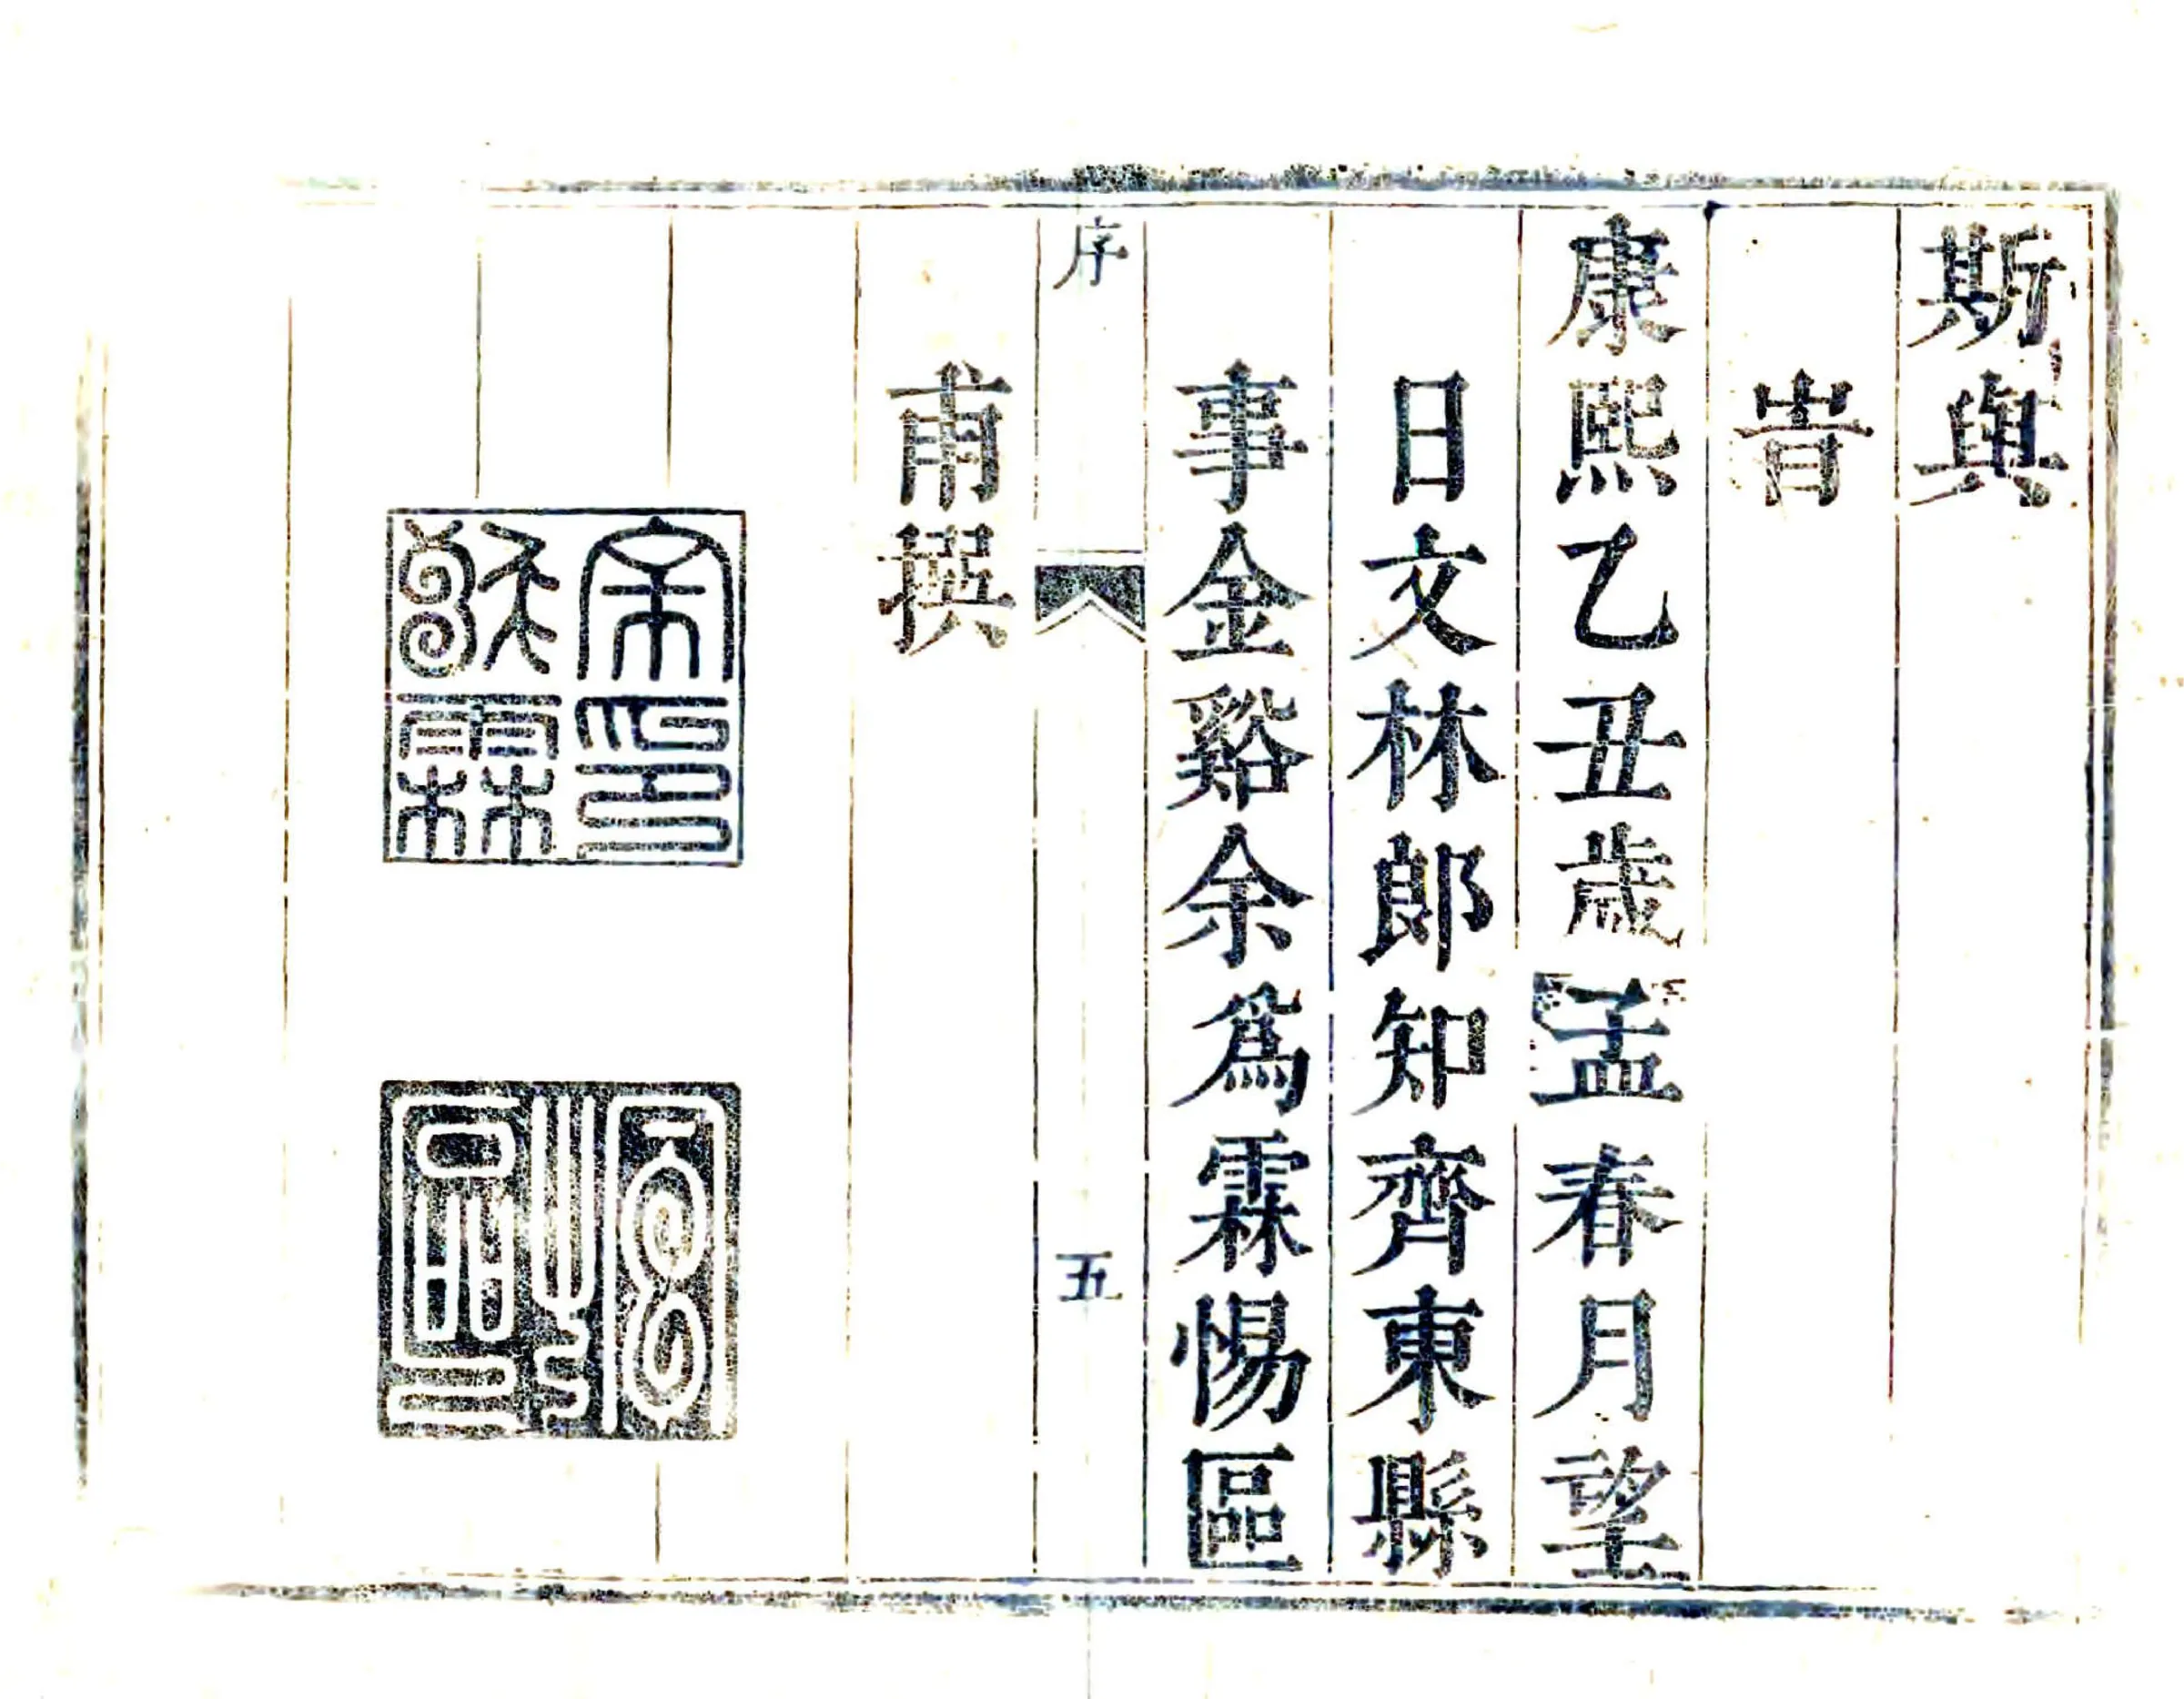 斯與
旹
康熙乙丑歲孟春月望
日文林郎知齊東縣
事金谿余爲霖惕區
序
五
甫撰
余印
爲霖